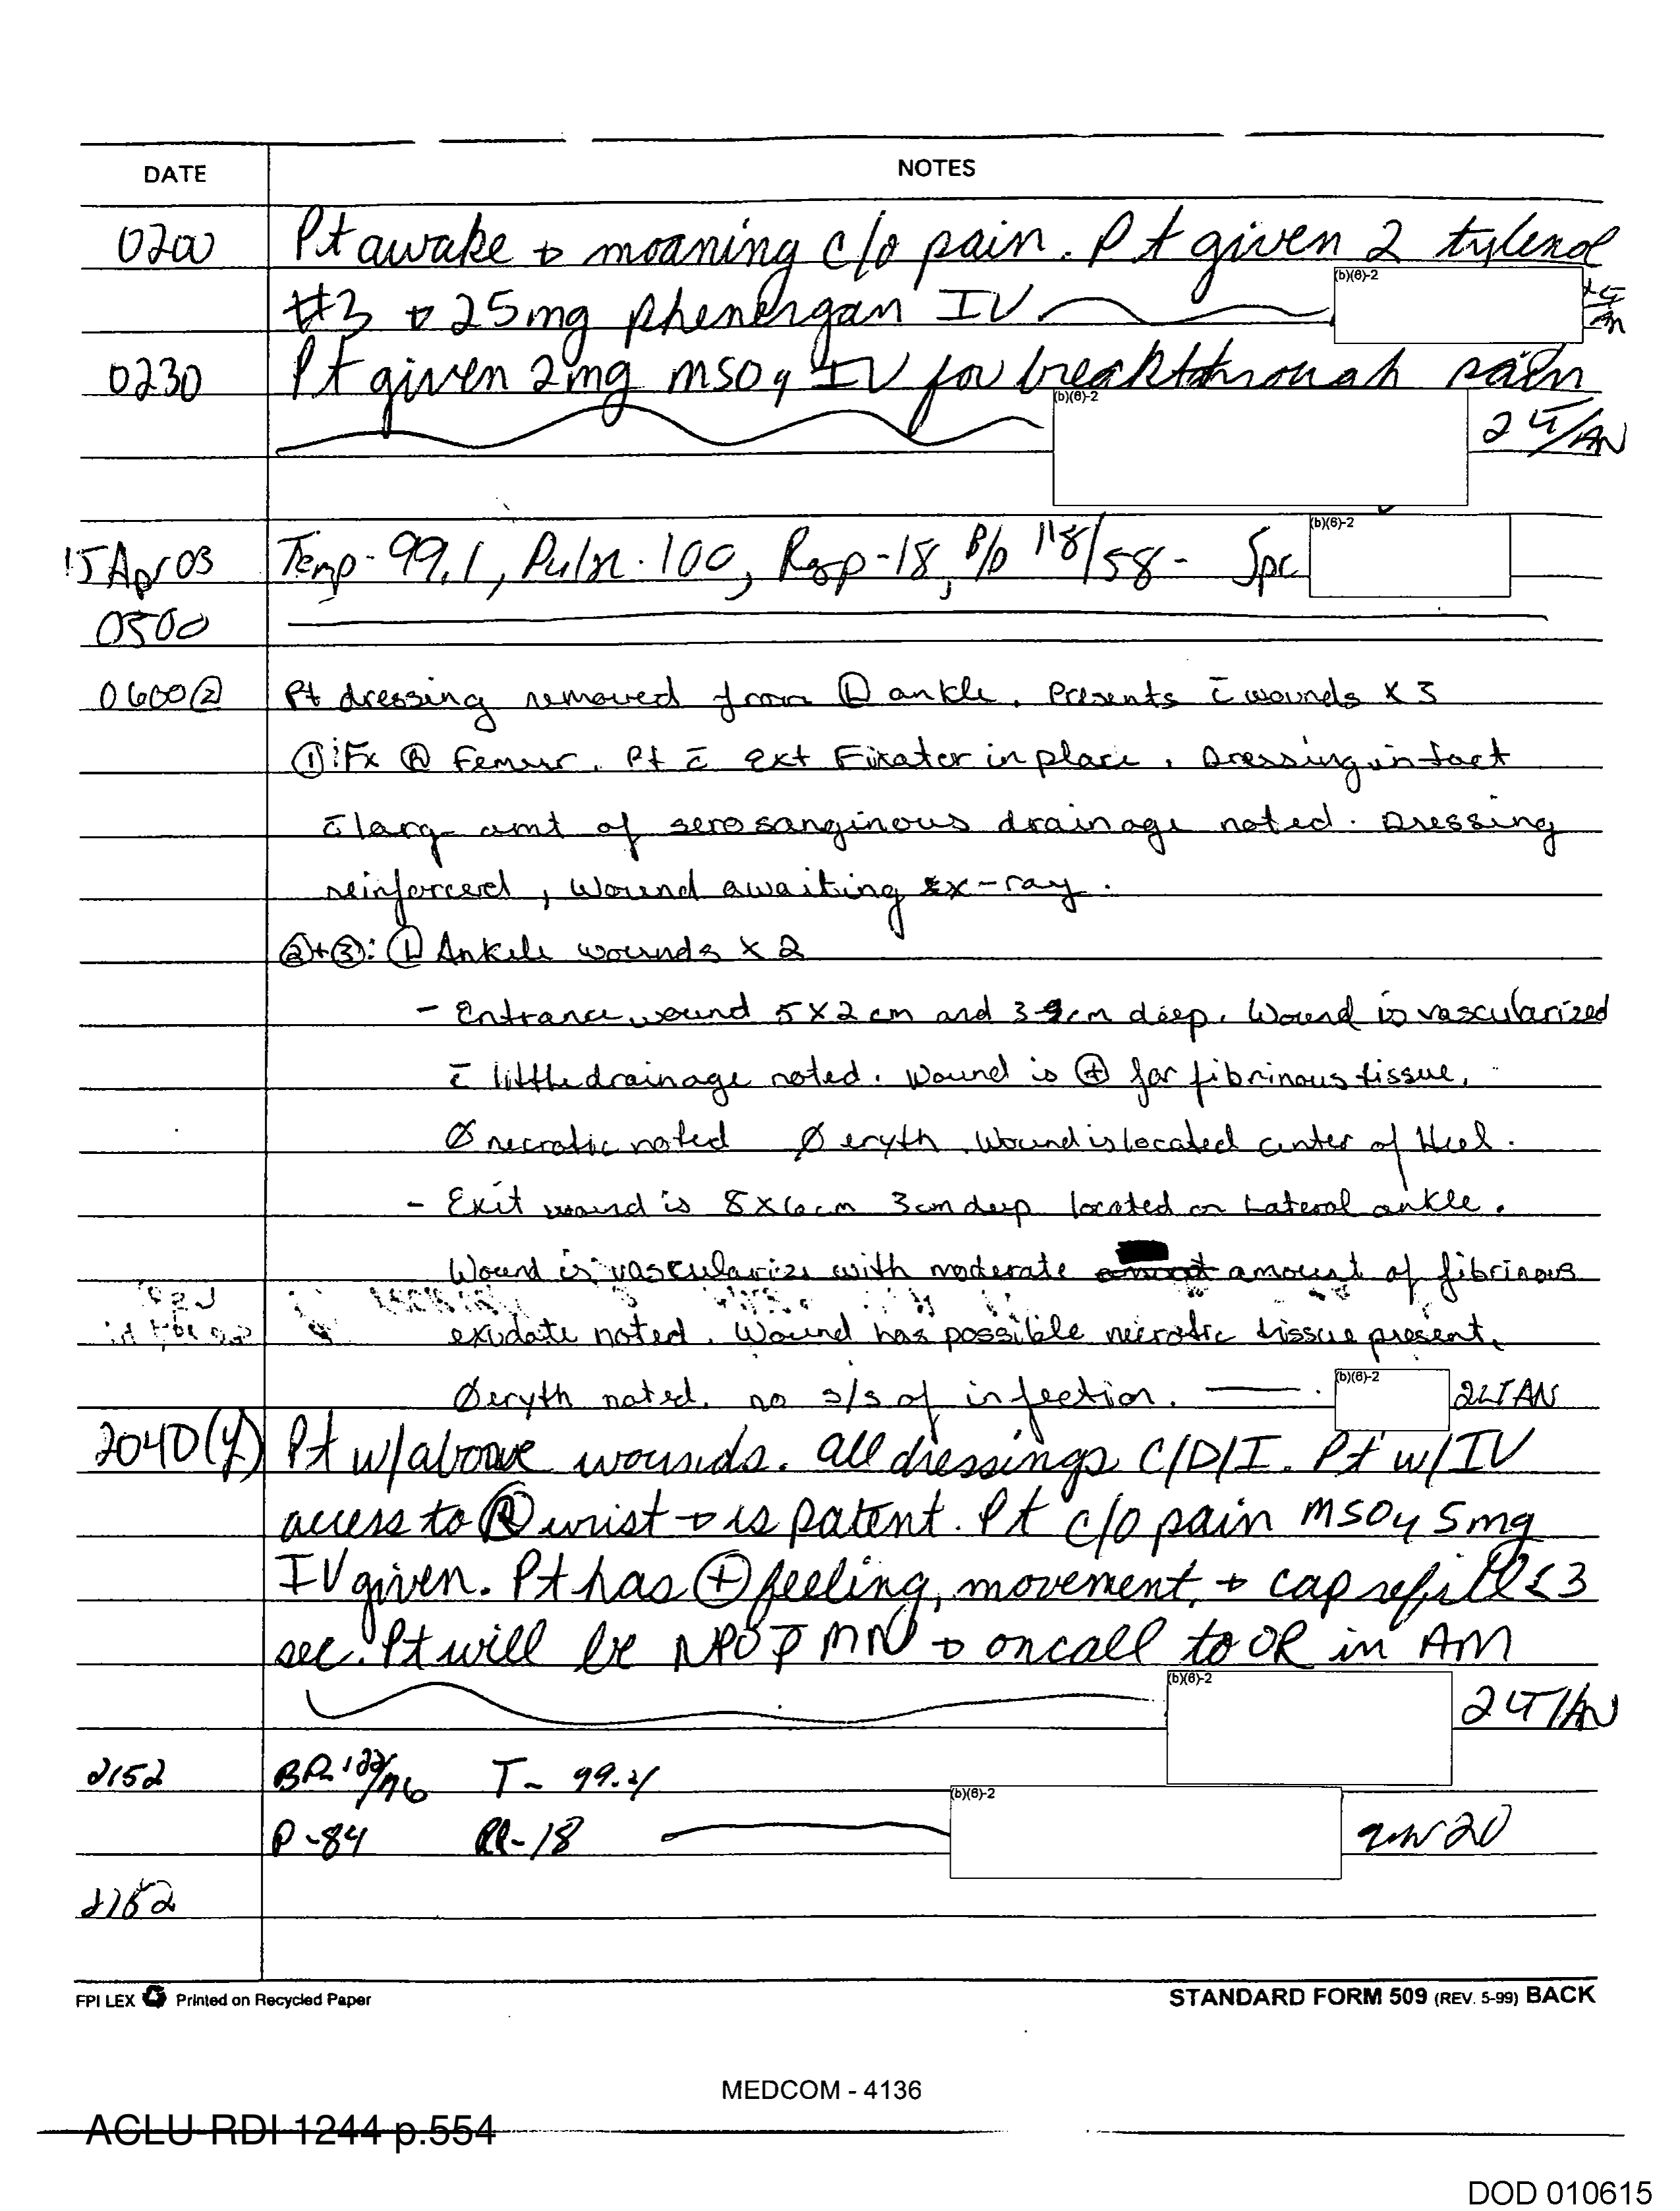 DATE NOTES
0200 Pt awake + moaning c/o pain. Pt given 2 tylenol
(b)(6)-2
#3 + 25mg phenergan IV
0230 Pt given 2mg MSO4 IV for breakthrough pain
(b)(6)-2
2LT/AN
(b)(6)-2
15 Apr 03 Temp-99.1, Pulse-100, Resp-18, B/P 118/58- Spc
0500
0600 Pt dressing removed from Ⓛ ankle. Presents c̄ wounds x 3
①: Fx Ⓡ Femur. Pt c̄ Ext Fixator in place. Dressing intact
c̄ large amt of serosanginous drainage noted. Dressing
reinforced, wound awaiting x-ray.
②+③: Ⓛ Ankle wounds x 2
- Entrance wound 5x2cm and 3 cm deep. Wound is vascularized
c̄ little drainage noted. Wound is ⊕ for fibrinous tissue.
Ø necrotic noted Ø eryth. Wound is located center of Heel.
- Exit wound is 8x6cm 3cm deep located on Lateral ankle.
Wound is vascularize with moderate amount of fibrinous
exudate noted. Wound has possible necrotic tissue present.
(b)(6)-2
Ø eryth noted. no s/s of infection. 2LT AN
2040 Pt w/above wounds. All dressings C/D/I. Pt w/IV
access to Ⓡ wrist + is patent. Pt c/o pain MSO4 5mg
IV given. Pt has ⊕ feeling, movement, + cap refill < 3
sec. Pt will be NPO p̄ MN + on call to OR in AM
(b)(6)-2
2LT/AN
2152 BP- 122/76 T- 99.21
(b)(6)-2
P-84 RR-18
2152
FPI LEX Printed on Recycled Paper STANDARD FORM 509 (REV. 5-99) BACK
MEDCOM - 4136
ACLU-RDI 1244 p.554
DOD 010615